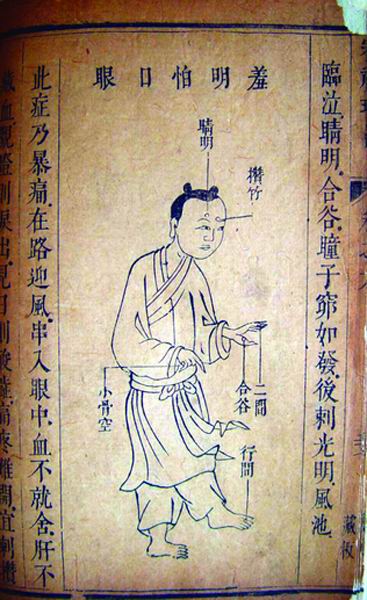 臨泣。睛明。合谷。瞳子窌如發。後刺光明。風池
羞明怕日眼
睛明
攢竹
二間
合谷
行間
小骨空
此症乃暴痛。在路迎風。串入眼中。血不就舍。肝不
藏血則淚出。見日則酸澀痛疼難開。宜刺攢
藏板